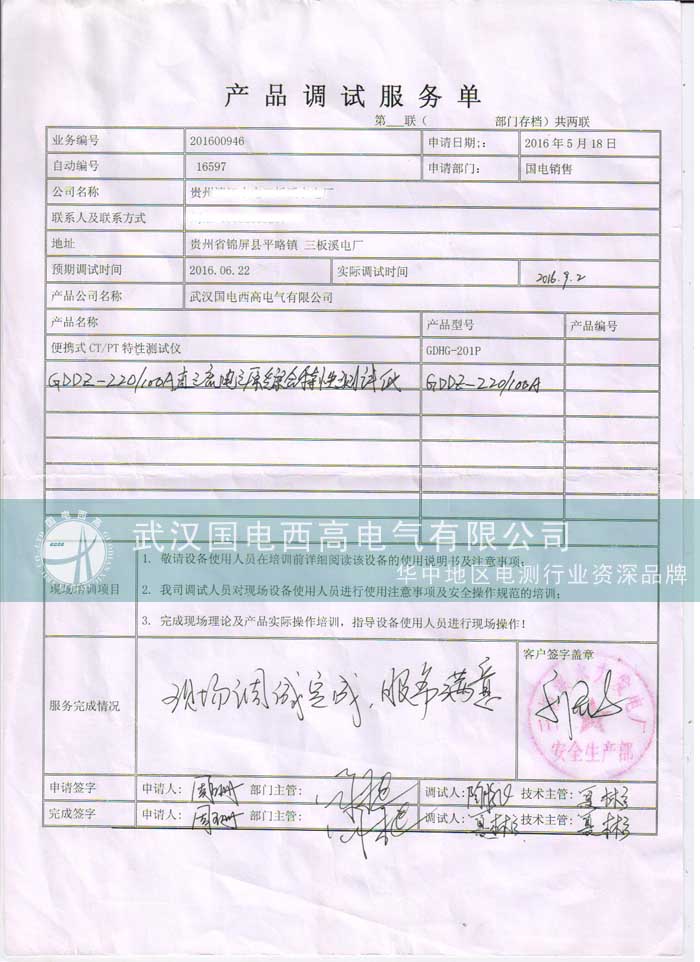 产品调试服务单
第___联（ 部门存档）共两联
业务编号 201600946 申请日期;: 2016 年 5 月 18 日
自动编号 16597 申请部门: 国电销售
公司名称 贵州
联系人及联系方式
地址 贵州省锦屏县平略镇 三板溪电厂
预期调试时间 2016.06.22 实际调试时间 2016.9.2
产品公司名称 武汉国电西高电气有限公司
产品名称 产品型号 产品编号
便携式 CT/PT 特性测试仪 GDHG-201P
GDDZ-220/100A直流电源系综合特性测试仪 GDDZ-220/100A
国电西高
武汉国电西高电气有限公司
华中地区电测行业资深品牌
现场培训项目
1. 敬请设备使用人员在培训前详细阅读该设备的使用说明书及注意事项;
2. 我司调试人员对现场设备使用人员进行使用注意事项及安全操作规范的培训;
3. 完成现场理论及产品实际操作培训，指导设备使用人员进行现场操作!
服务完成情况 现场调试完成，服务满意
客户签字盖章
安全生产部
申请签字 申请人: 部门主管: 调试人: 技术主管: 夏彬
完成签字 申请人: 部门主管: 调试人: 夏彬 技术主管: 夏彬